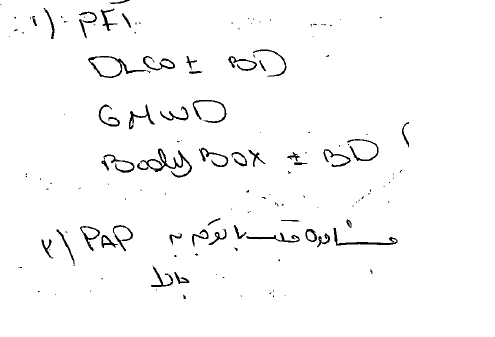 ۱) PFT
DLCO ± BD
6MWD
Body BOX ± BD
۲) PAP مشاوره قلب با توجه به
بالا